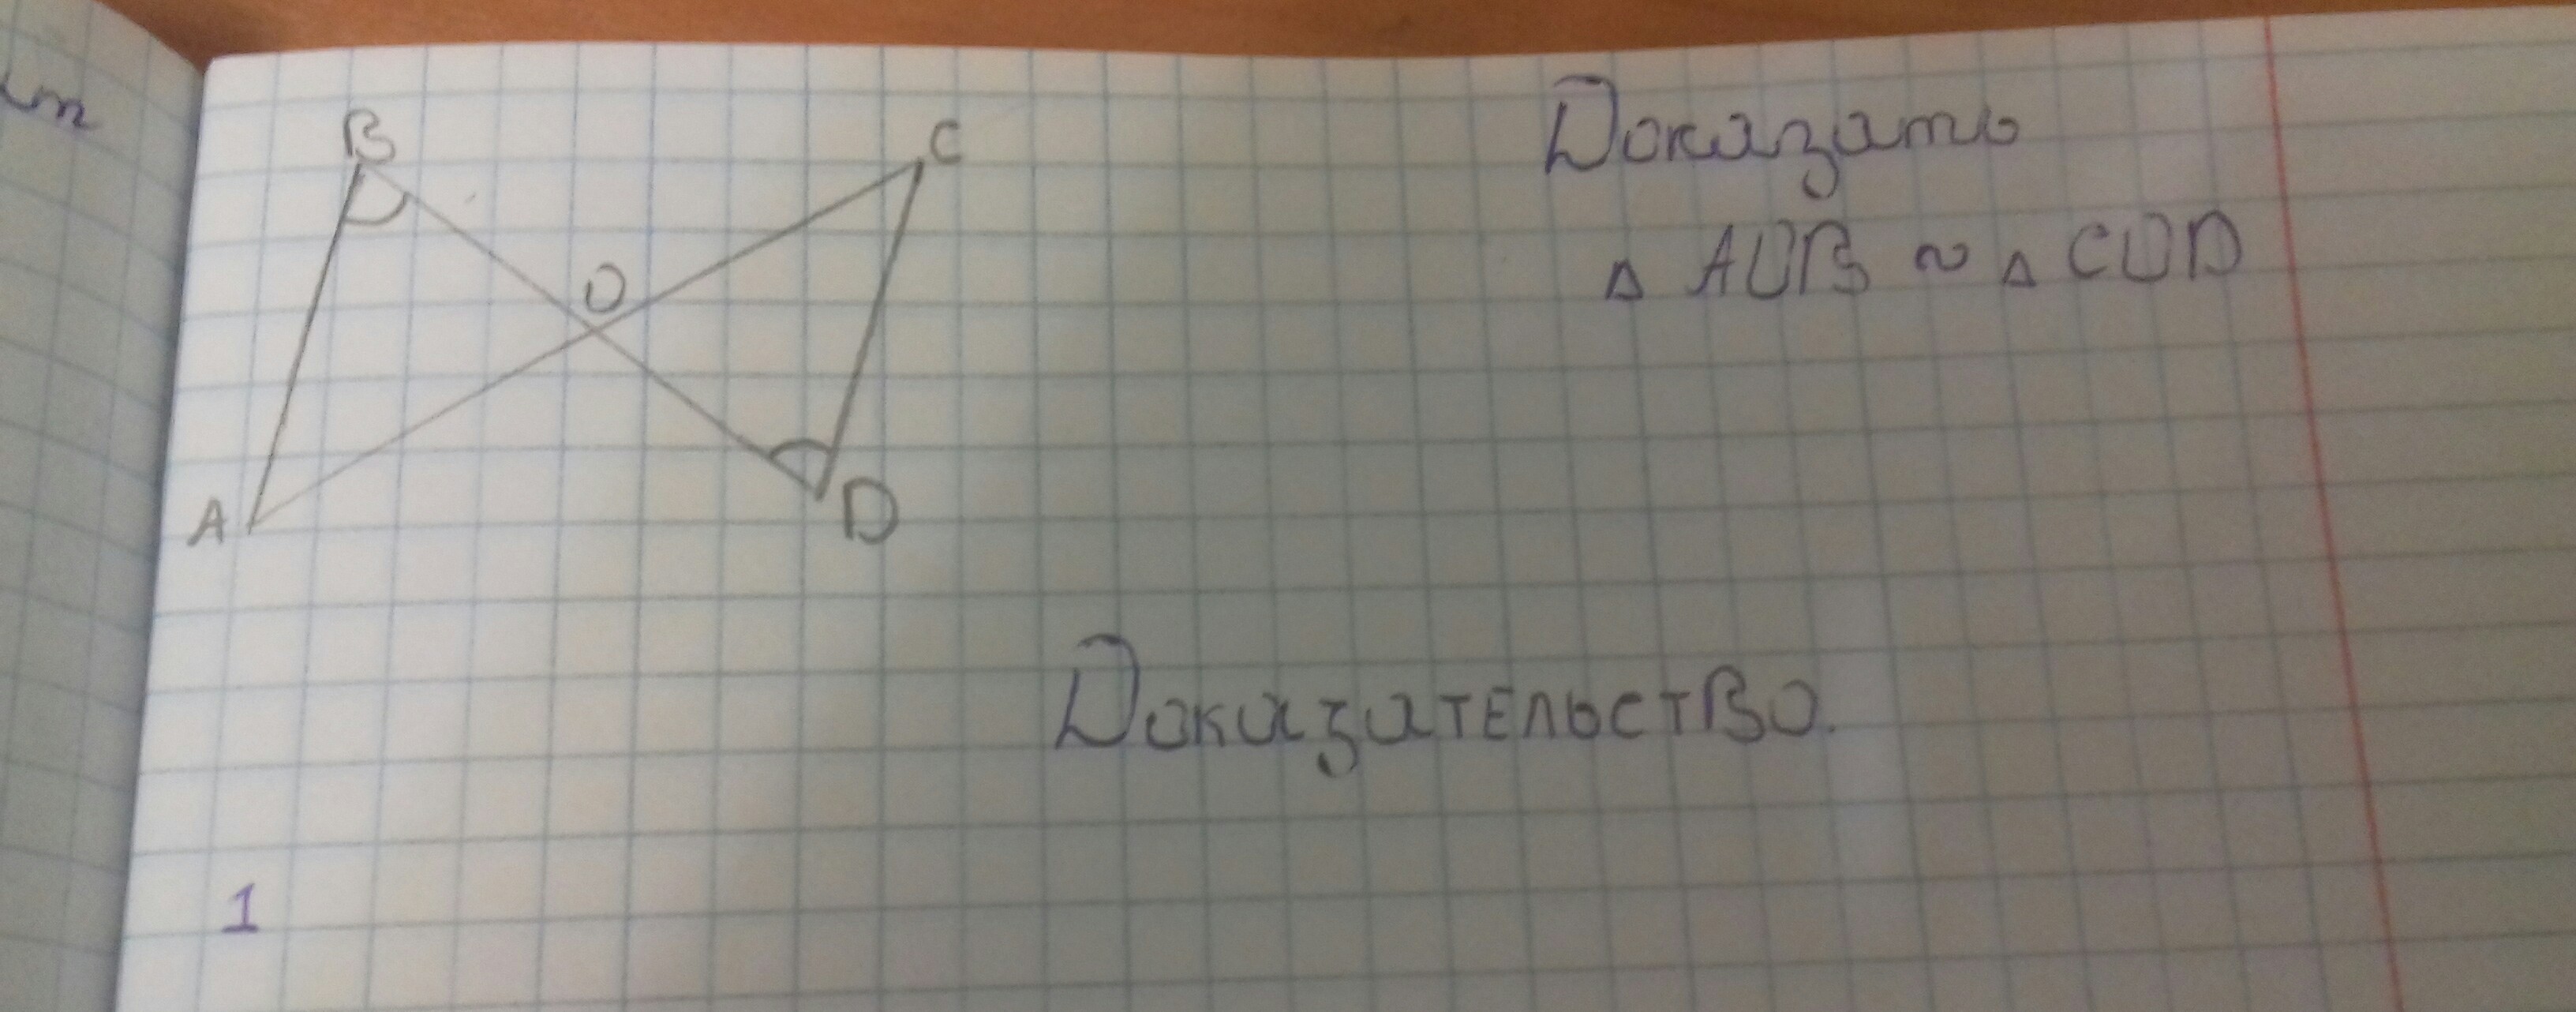 B
C
O
A
D
Доказать
△ AOB ~ △ COD
Доказательство.
1